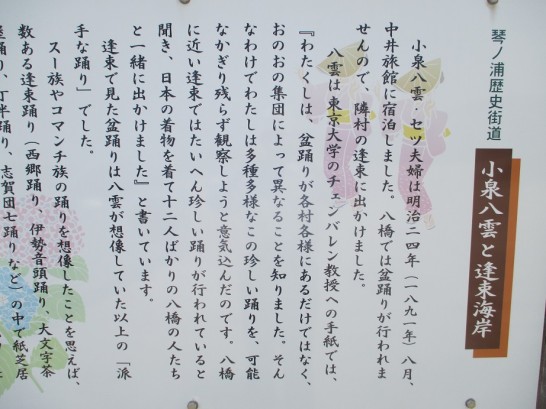 琴ノ浦歴史街道
小泉八雲と逢束海岸
小泉八雲・セツ夫婦は明治二四年（一八九一年）八月、
中井旅館に宿泊しました。八橋では盆踊りが行われま
せんので、隣村の逢束に出かけました。
八雲は東京大学のチェンバレン教授への手紙では、
『わたくしは、盆踊りが各村各様にあるだけではなく、
おのおの集団によって異なることを知りました。そん
なわけでわたしは多種多様なこの珍しい踊りを、可能
なかぎり残らず観察しようと意気込んだのです。八橋
に近い逢束ではたいへん珍しい踊りが行われていると
聞き、日本の着物を着て十二人ばかりの八橋の人たち
と一緒に出かけました』と書いています。
逢束で見た盆踊りは八雲が想像していた以上の「派
手な踊り」でした。
スー族やコマンチ族の踊りを想像したことを思えば、
数ある逢束踊り（西郷踊り、伊勢音頭踊り、大文字茶
屋踊り、丁半踊り、志賀団七踊りなど）の中で紙芝居